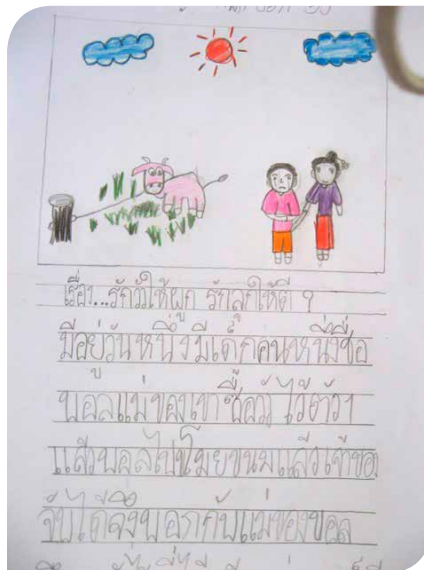 เรื่อง...รักวัวให้ผูก รักลูกให้ตี ?
มีอยู่วันหนึ่งมีเด็กคนหนึ่งชื่อ
บอลแม่ของเขาซื้อวัวไว้ตัว1
แล้วบอลไปขโมยขนมแล้วเจ้าของ
จับได้จึงบอกกับแม่ของบอล